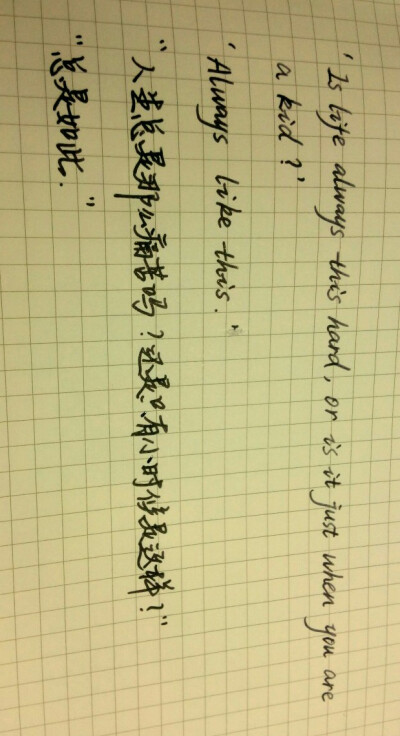 'Is life always this hard, or is it just when you are
a kid?'
'Always like this.'
"人生总是那么痛苦吗？还是只有小时候是这样？"
"总是如此."